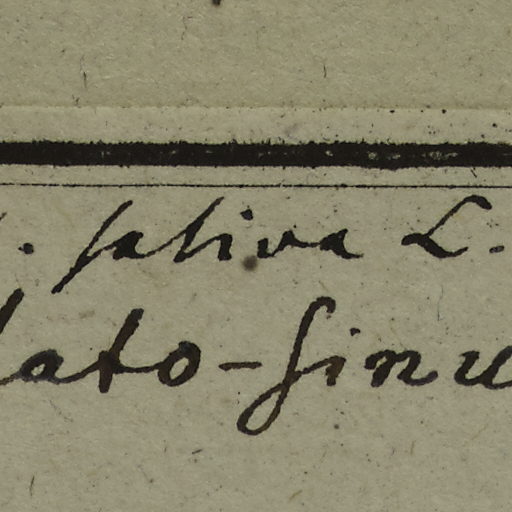 . sativa L.
lato-sinu